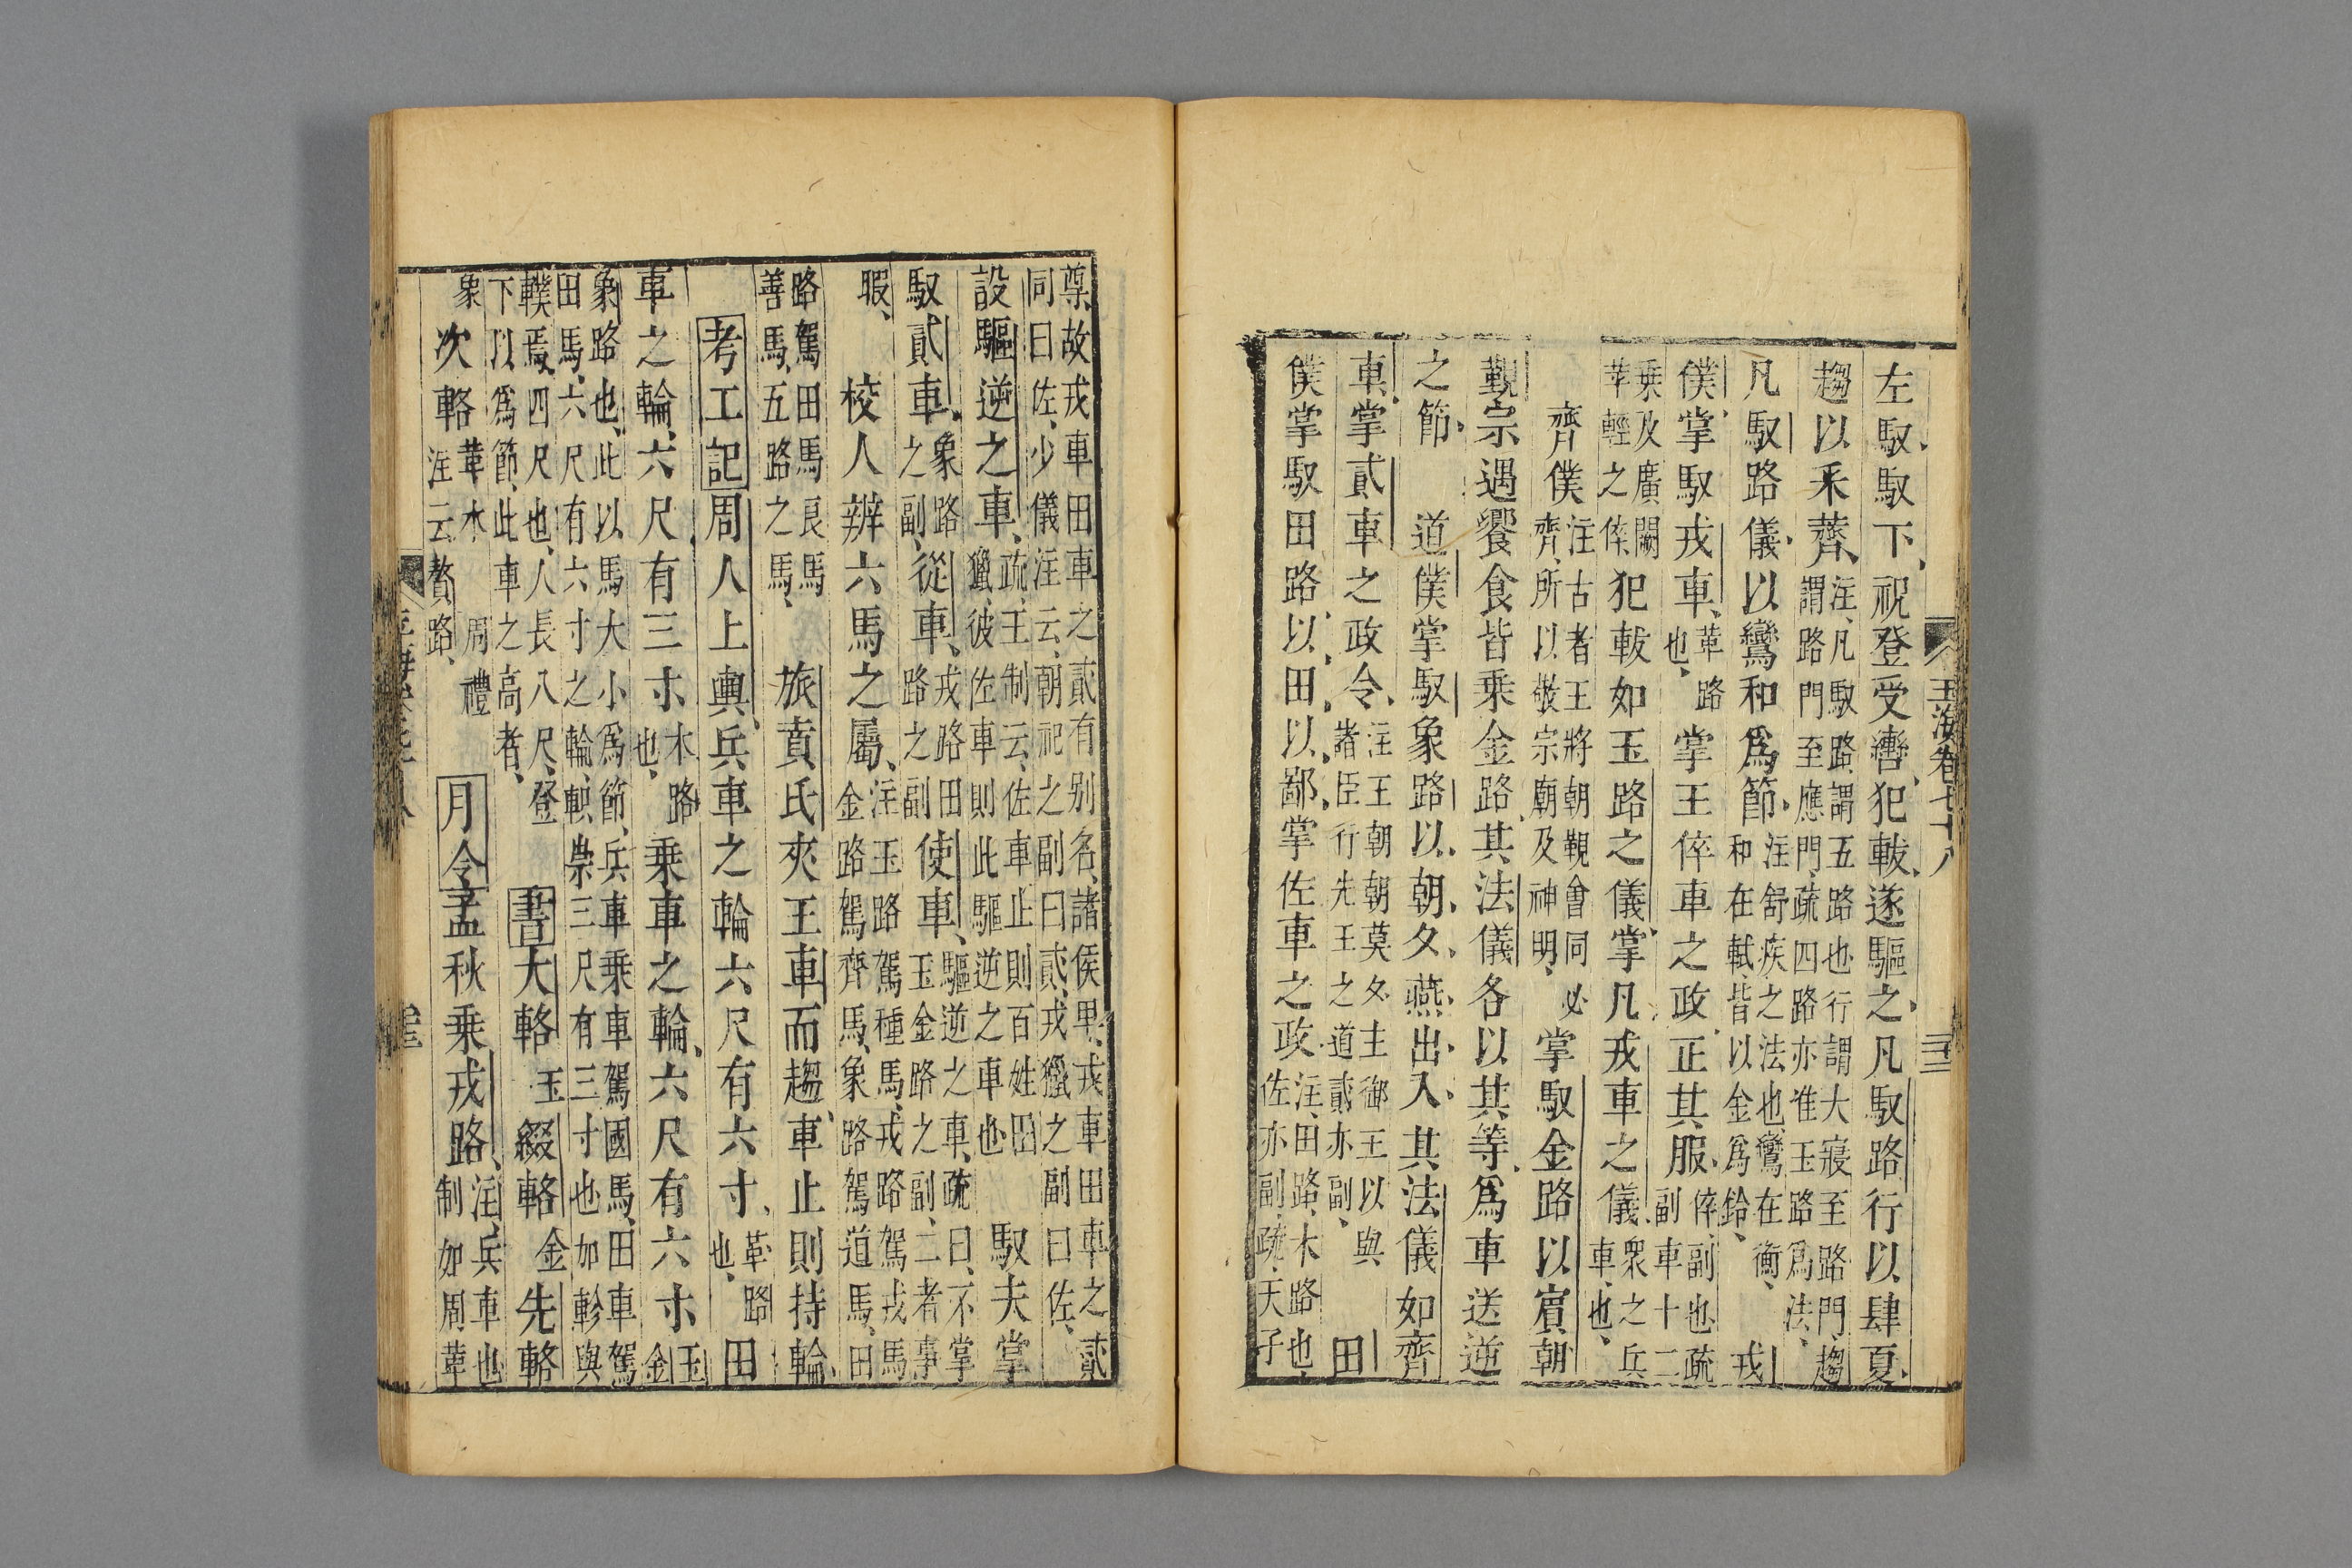 左馭馭下祝登受轡犯軷遂驅之凡馭路行以肆夏
趨以釆薺注凡馭路謂五路也行謂大寢至路門趨
謂路門至應門疏四路亦准玉路爲法
凡馭路儀以鸞和爲節注舒疾之法也鸞在衡
和在軾皆以金爲鈴戎
僕掌馭戎車革路
也掌王倅車之政正其服倅副也疏
副車十二
乗及廣闕
苹輕之倅犯軷如玉路之儀掌凡戎車之儀衆之兵
車也
齊僕注古者王將朝覲會同必
齊所以敬宗廟及神明掌馭金路以賓朝
覲宗遇饗食皆乗金路其法儀各以其等爲車送逆
之節道僕掌馭象路以朝夕燕出入其法儀如齊
車掌貳車之政令注王朝朝莫夕主御王以與
諸臣行先王之道貳亦副田
僕掌馭田路以田以鄙掌佐車之政注田路木路也
佐亦副疏天子
玉海卷七十八
尊故戎車田車之貳有別名諸侯𤰞戎車田車之貳
同曰佐少儀注云朝祀之副曰貳戎獵之副曰佐
設驅逆之車疏王制云佐車止則百姓田
獵彼佐車則此驅逆之車也馭夫掌
馭貳車象路
之副從車戎路田
路之副使車驅逆之車疏曰不掌
玉金路之副二者事
暇校人辨六馬之屬注玉路駕種馬戎路駕戎馬
金路駕齊馬象路駕道馬田
路駕田馬良馬
善馬五路之馬旅賁氏夾王車車而趨車止則持輪
考工記周人上輿兵車之輪六尺有六寸革路
也田
車之輪六尺有三寸木路
也乗車之輪六尺有六寸玉
金
象路也此以馬大小爲節兵車乗車駕國馬田車駕
田馬六尺有六寸之輪軹崇三尺有三寸也加軫與
轐焉四尺也人長八尺登
下以爲節此車之高者書大輅玉綴輅金先輅
象次輅革木
注云贅路周禮月令孟秋乗戎路注兵車也
制如周革